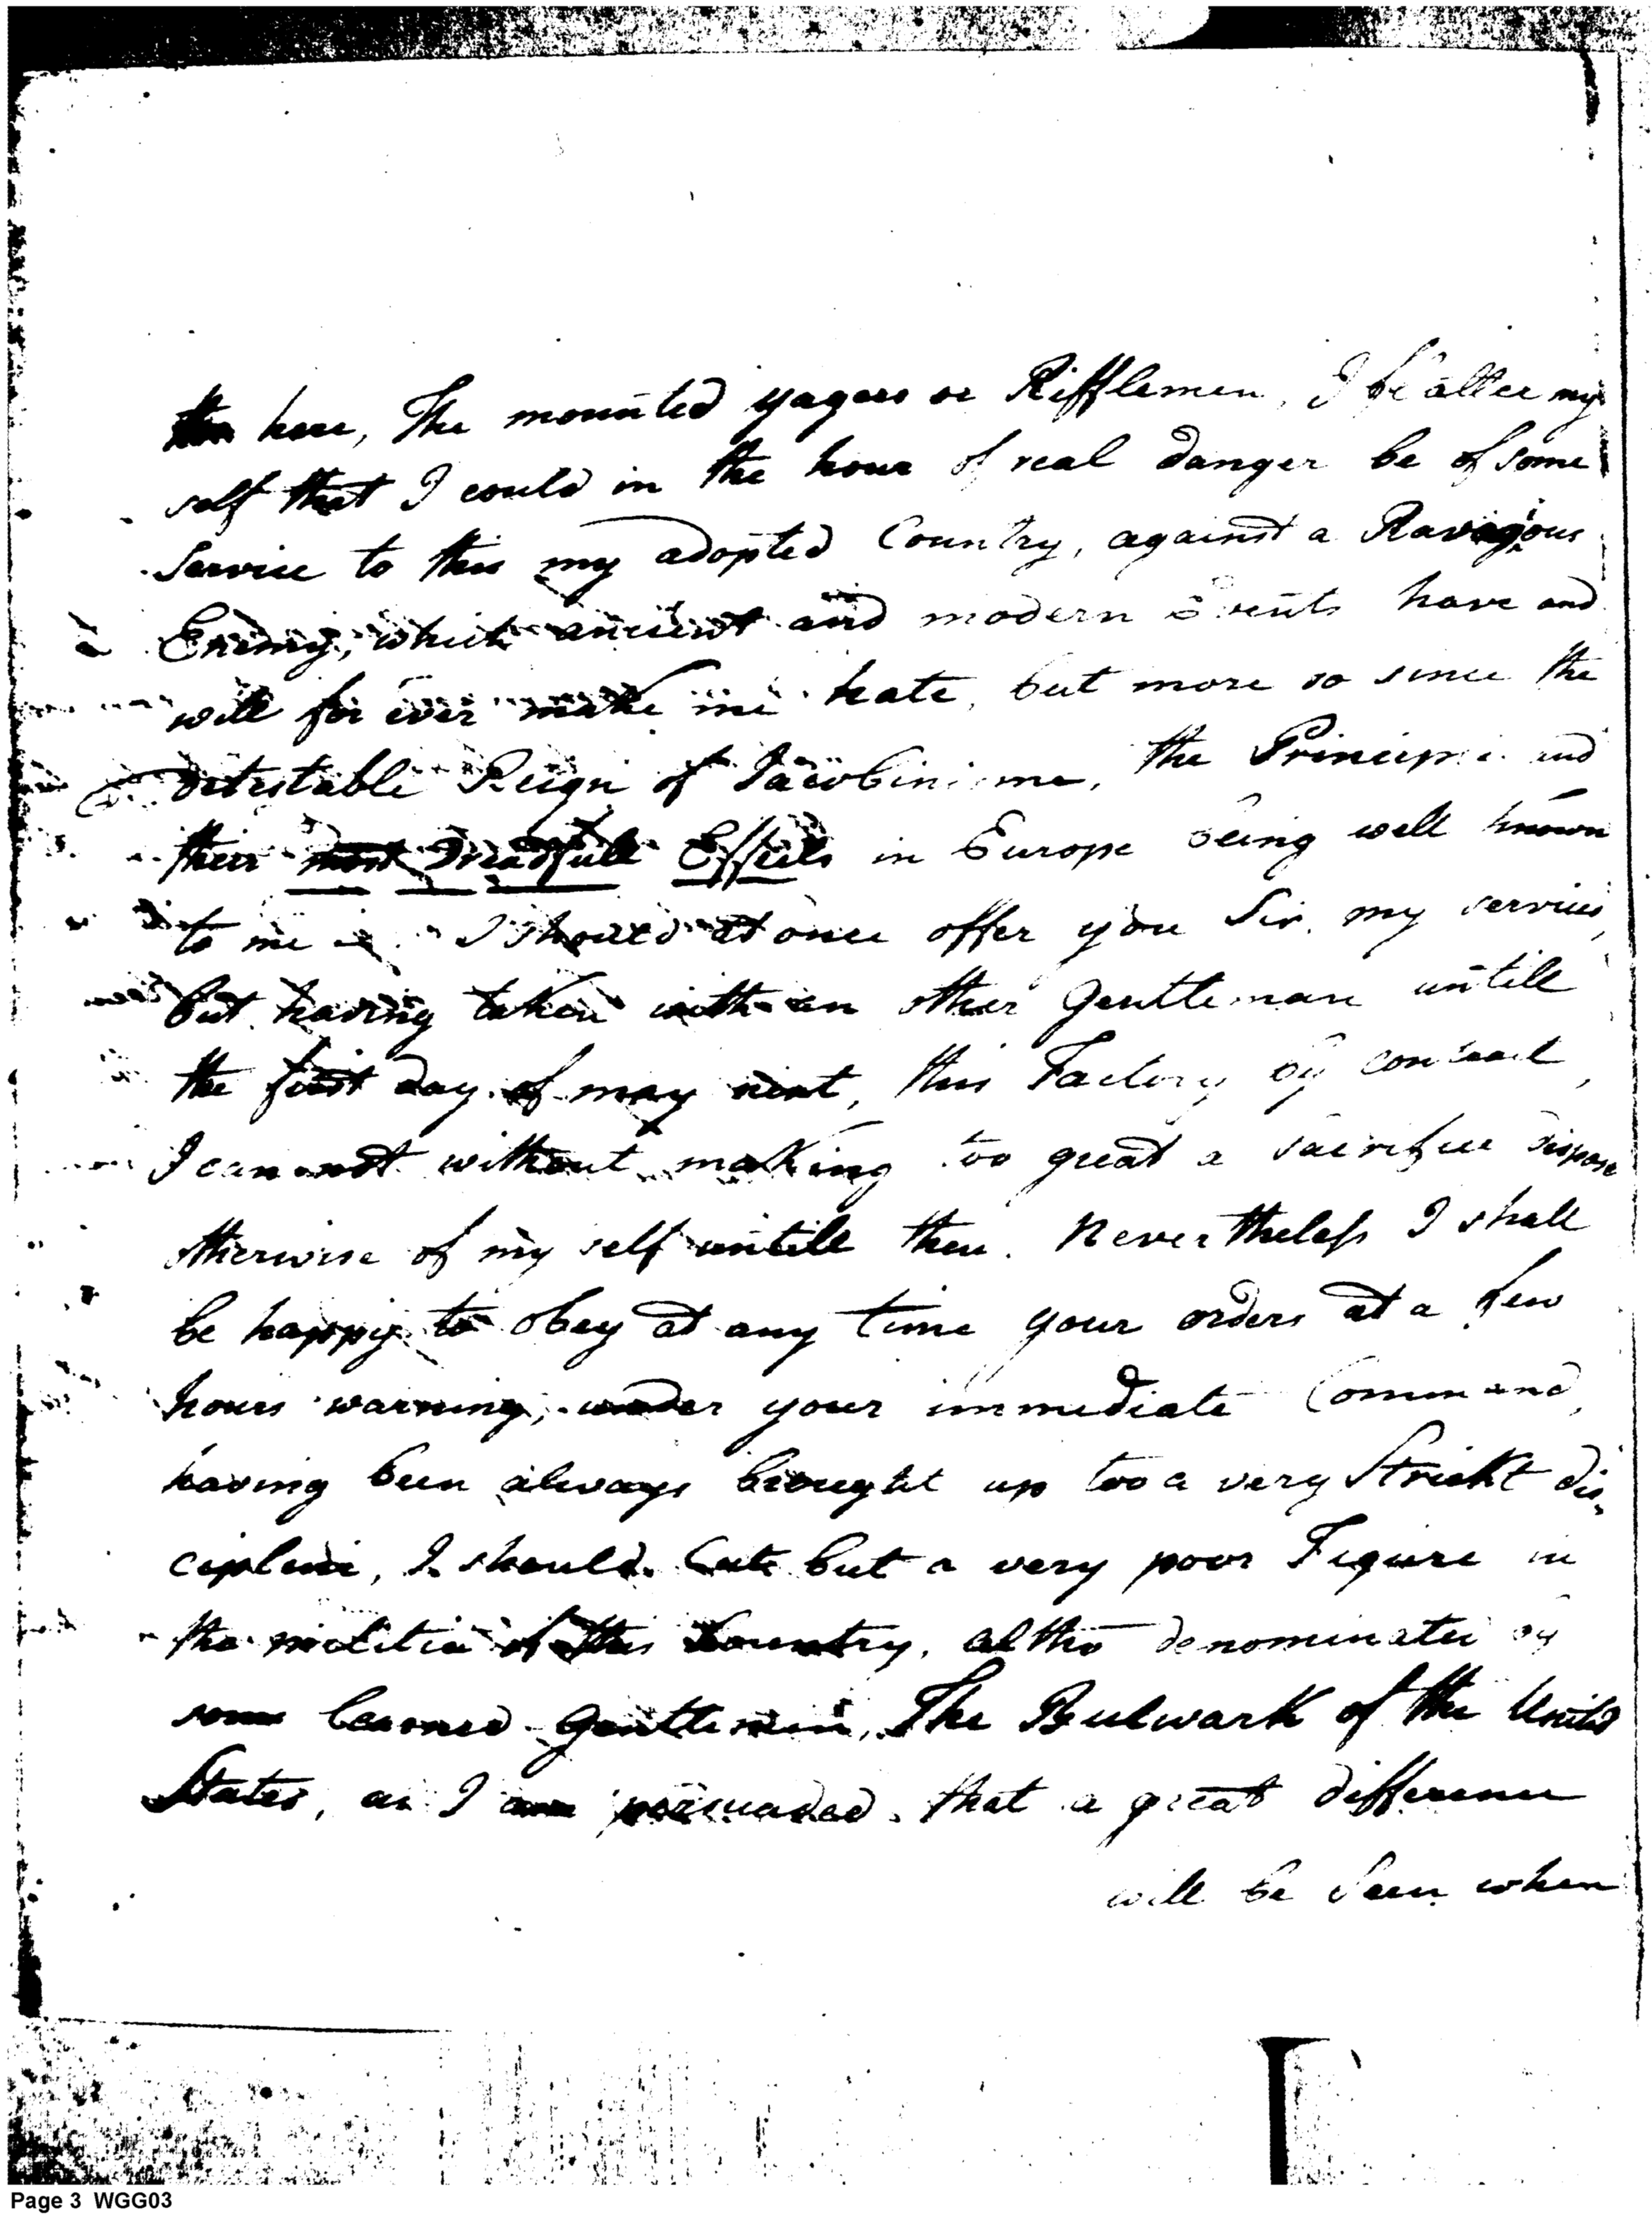 here, The mounted yagers or Rifflemen, I flatter my
self that I could in the hour of real danger be of some
Service to this my adopted Country, against a Ravagous
Enemy, which ancient and modern Events have and
will for ever make me hate, but more so since the
detestable Reign of Jacobinisme, the Principe and
their most Dreadfull Effects in Europe being well known
to me I should at once offer you Sir, my services,
but having taken with an other Gentleman untill
the first day of may next, this Factory by contract,
I can not without making too great a sacrifice dispose
otherwise of my self untill then. Nevertheless I shall
be happy to obey at any time your orders at a few
hours warning, under your immediate Command,
having been always brought up too a very Strickt dis-
cipline, I should Cut but a very poor Figure in
the militia of this Country, altho denominated by
some learned Gentlemen, The Bulwark of the United
States, as I am persuaded that a great difference
will be Seen when
Page 3 WGG03